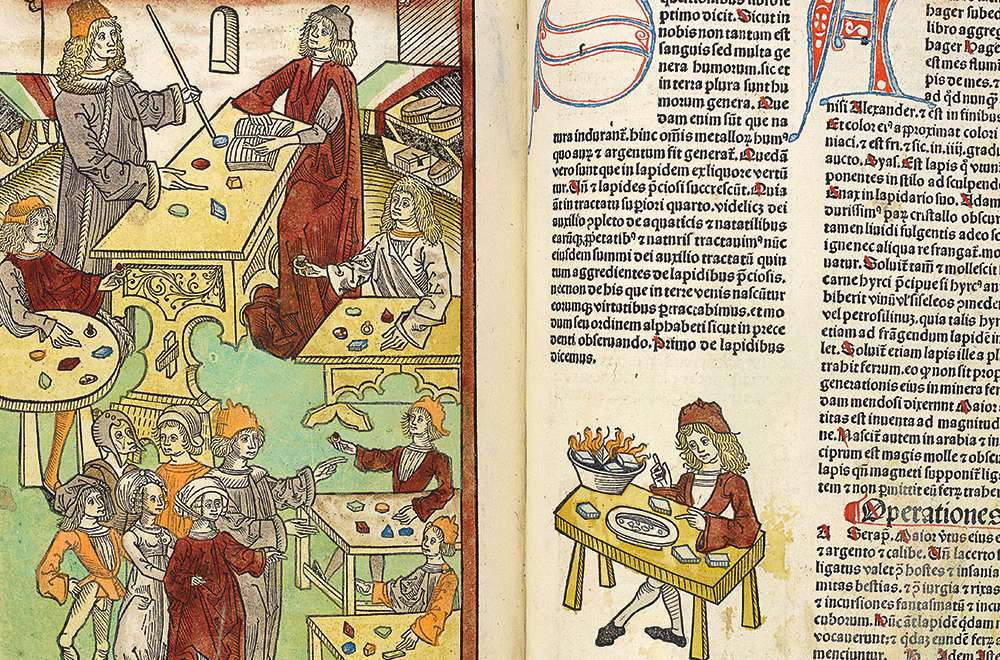 ptimo dicit. Sicut in
nobis non tantum est
sanguis sed multa ge
nera humorum. sic et
in terra plura sunt hu
morum genera. Que
dam enim sūt que na
tura indurant̄. hinc om̄is metallorꝝ humꝰ
quo aurꝫ ⁊ argentum fit generat̄. Quedā
vero sunt que in lapidem ex liquore vertū
tur. Uñ ⁊ lapides p̄ciosi succrescūt. Quia
aūt in tractatu supiori quarto. videlicꝫ dei
auxilio ꝯpleto de aquaticis ⁊ natatilibus
tractauimꝰ nūc
eiusdem summi dei auxilio tractatū quin
tum aggredientes de lapidibus p̄ciosis.
necnon de his que in terre venis nascūtur
eorumqꝫ virtutibus ꝑtractabimus. et mo
dum seu ordinem alphabeti sicut in prece
denti obseruando. Primo de lapidibus
dicemus.
hager subed
libro aggreg
hager
est mes flum
pis de mes. t
ad qd nunq̄
nisi Alexander. ⁊ est in finibus
Et color eiꝰ approximat colori
niaci. ⁊ est fri. ⁊ sic. in .iiij. gradu
aucto. Ayal. Est lapis
ponentes in stilo ad sculpend
in lapidario suo. Adam
durissimꝰ par cristallo obscur
tamen liuidi fulgentis adeo
igne nec aliqua re frangat̄.
uatur. Soluit̄ tam̄ ⁊ mollescit
carne hyrci p̄cipue si hyrcꝰ
biberit vinū vl̓ sileleos
vel petrosilinū. quia talis hyr
etiam ad frāgendum lapidem
let. Soluit̄ etiam lapis ille a pl
trahit ferum. eo ꝙ non sit prop
generationis eius in minera fer
dam mendosi dixerunt. Maior
titas est inuenta ad magnitud
ne. Nascit̄ autem in arabia ⁊ in
ciprum est magis molle ⁊ obscu
lapis qn̄ magneti supponit̄ lig
tem ⁊ non pmittit eū ferꝝ trahe
Operationes
A Serap. Maior
⁊ argento ⁊ calibe. Uñ lacerto
ligatus valet ꝯ̄ hostes ⁊ insania
mitas bestias. ⁊ ꝯ̄ iurgia ⁊ rixas
⁊ incursiones fantasmatū ⁊ incu
cuborum. lapidē qdam
vocauerunt: ⁊ qdā eundē
menciuntur. Adem